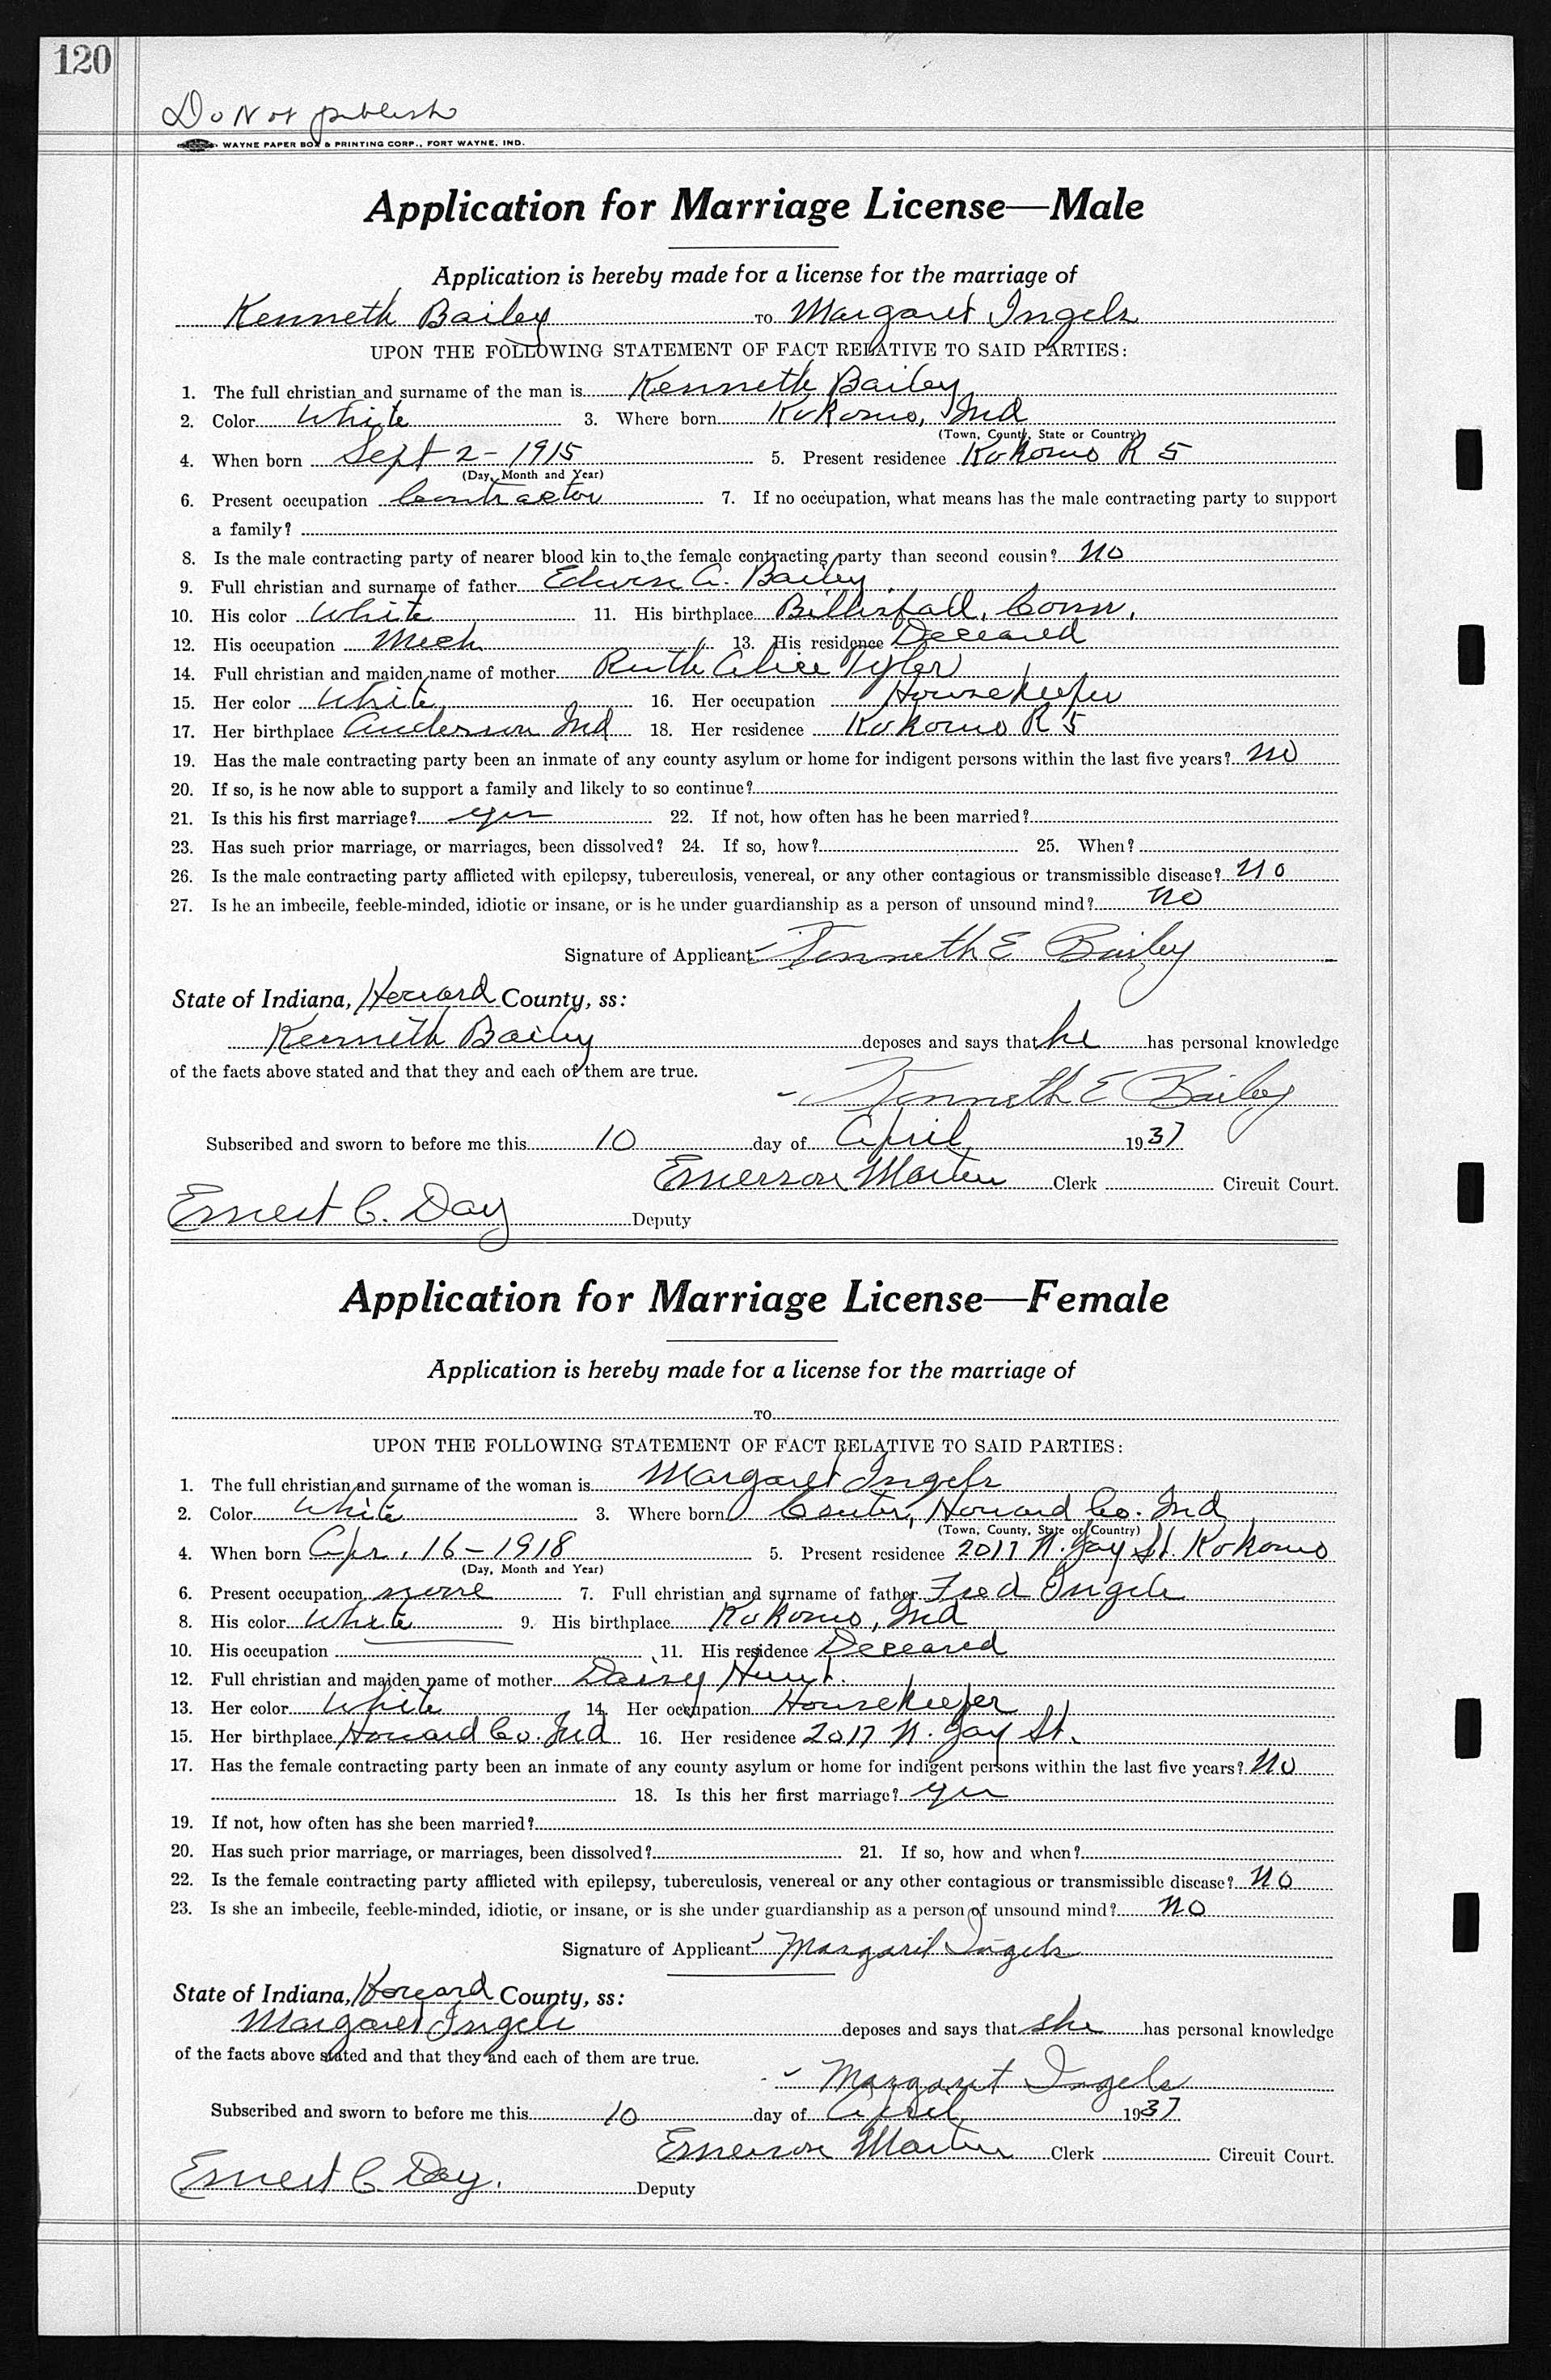 120
Do Not publish
WAYNE PAPER BOX & PRINTING CORP., FORT WAYNE, IND.
Application for Marriage License—Male
Application is hereby made for a license for the marriage of
Kenneth Bailey TO Margaret Ingels
UPON THE FOLLOWING STATEMENT OF FACT RELATIVE TO SAID PARTIES:
1. The full christian and surname of the man is Kenneth Bailey
2. Color White 3. Where born Kokomo, Ind
(Town, County, State or Country)
4. When born Sept 2 - 1915 5. Present residence Kokomo R 5
(Day, Month and Year)
6. Present occupation Contractor 7. If no occupation, what means has the male contracting party to support
a family?
8. Is the male contracting party of nearer blood kin to the female contracting party than second cousin? No
9. Full christian and surname of father Edwin A. Bailey
10. His color White 11. His birthplace Conn.
12. His occupation Mech 13. His residence Deceased
14. Full christian and maiden name of mother Ruth Alice Tyler
15. Her color White 16. Her occupation Housekeeper
17. Her birthplace Anderson Ind 18. Her residence Kokomo R 5
19. Has the male contracting party been an inmate of any county asylum or home for indigent persons within the last five years? No
20. If so, is he now able to support a family and likely to so continue?
21. Is this his first marriage? yes 22. If not, how often has he been married?
23. Has such prior marriage, or marriages, been dissolved? 24. If so, how? 25. When?
26. Is the male contracting party afflicted with epilepsy, tuberculosis, venereal, or any other contagious or transmissible disease? No
27. Is he an imbecile, feeble-minded, idiotic or insane, or is he under guardianship as a person of unsound mind? No
Signature of Applicant Kenneth E Bailey
State of Indiana, Howard County, ss:
Kenneth Bailey deposes and says that he has personal knowledge
of the facts above stated and that they and each of them are true.
Kenneth E Bailey
Subscribed and sworn to before me this 10 day of April 1937
Emerson Martin Clerk Circuit Court.
Ernest C. Day Deputy
Application for Marriage License—Female
Application is hereby made for a license for the marriage of
TO
UPON THE FOLLOWING STATEMENT OF FACT RELATIVE TO SAID PARTIES:
1. The full christian and surname of the woman is Margaret Ingels
2. Color White 3. Where born Center, Howard Co. Ind
(Town, County, State or Country)
4. When born Apr. 16 - 1918 5. Present residence 2017 N. Jay St. Kokomo
(Day, Month and Year)
6. Present occupation none 7. Full christian and surname of father Fred Ingels
8. His color White 9. His birthplace Kokomo, Ind
10. His occupation 11. His residence Deceased
12. Full christian and maiden name of mother Daisy Hunt.
13. Her color White 14. Her occupation Housekeeper
15. Her birthplace Howard Co. Ind 16. Her residence 2017 N. Jay St.
17. Has the female contracting party been an inmate of any county asylum or home for indigent persons within the last five years? No
18. Is this her first marriage? yes
19. If not, how often has she been married?
20. Has such prior marriage, or marriages, been dissolved? 21. If so, how and when?
22. Is the female contracting party afflicted with epilepsy, tuberculosis, venereal or any other contagious or transmissible disease? No
23. Is she an imbecile, feeble-minded, idiotic, or insane, or is she under guardianship as a person of unsound mind? No
Signature of Applicant Margaret Ingels
State of Indiana, Howard County, ss:
Margaret Ingels deposes and says that she has personal knowledge
of the facts above stated and that they and each of them are true.
Margaret Ingels
Subscribed and sworn to before me this 10 day of April 1937
Emerson Martin Clerk Circuit Court.
Ernest C. Day. Deputy